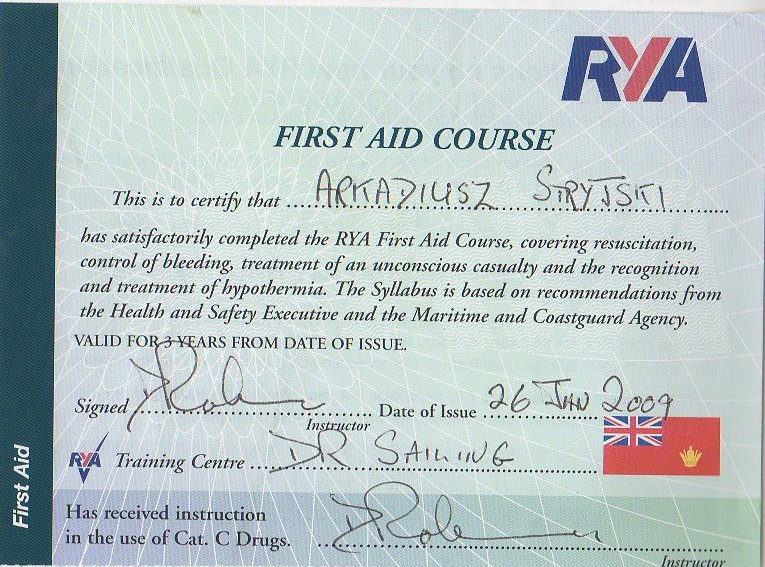 RYA
FIRST AID COURSE
This is to certify that ARKADIUSZ STRYJSKI
has satisfactorily completed the RYA First Aid Course, covering resuscitation,
control of bleeding, treatment of an unconscious casualty and the recognition
and treatment of hypothermia. The Syllabus is based on recommendations from
the Health and Safety Executive and the Maritime and Coastguard Agency.
VALID FOR 3 YEARS FROM DATE OF ISSUE.
Signed Date of Issue 26 JAN 2009
Instructor
RYA Training Centre DR SAILING
Has received instruction
in the use of Cat. C Drugs.
Instructor
First Aid